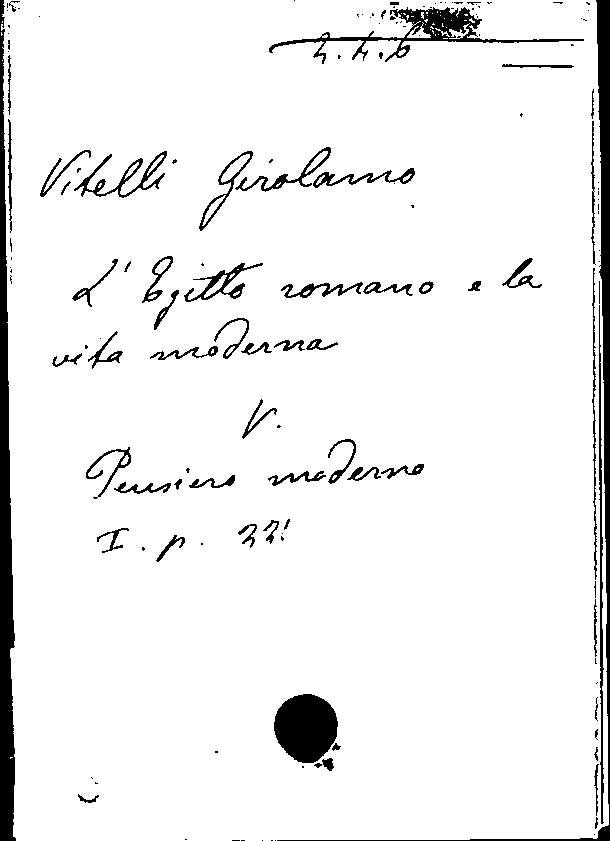 2.4.6
Vitelli Girolamo
L'Egitto romano e la
vita moderna
V.
Pensiero moderno
I. p. 221